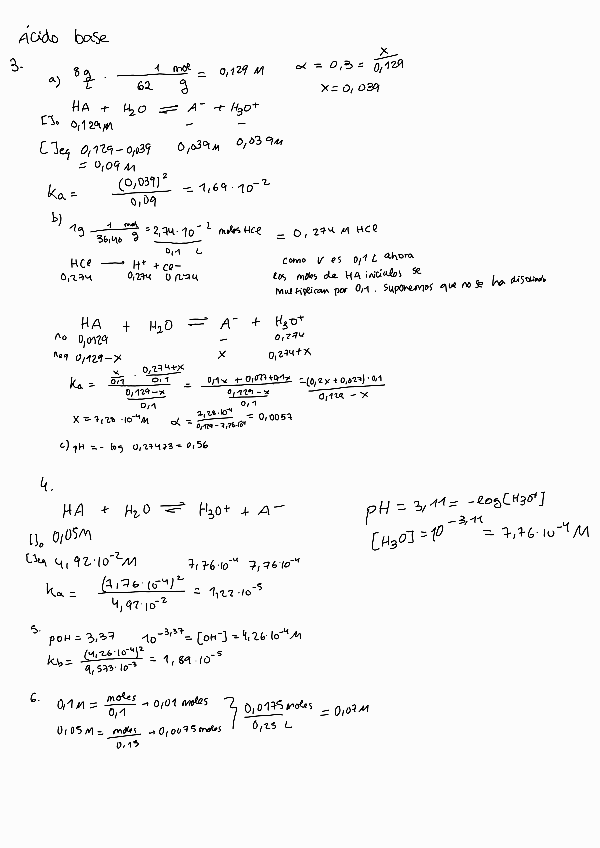 Ácido base
3. a) 8g/L · 1 mol/62 g = 0,129 M   α = 0,3 = x/0,129
x = 0,039
HA + H2O ⇌ A⁻ + H3O+
[]o 0,129M   –   –
[]eq 0,129-0,039   0,039M   0,039M
= 0,09 M
Ka = (0,039)²/0,09 = 1,69·10⁻²
b) 1g 1 mol/36,46 g = 2,74·10⁻² moles HCl/0,1 L = 0,274 M HCl
HCl → H⁺ + Cl⁻
0,274   0,274   0,274
como V es 0,1 L ahora
los moles de HA iniciales se
multiplican por 0,1. Suponemos que no se ha disociado
HA + H2O ⇌ A⁻ + H3O+
no 0,0129   –   0,274
neq 0,129-x   x   0,274+x
Ka = (x/0,1 · (0,274+x)/0,1)/((0,129-x)/0,1) = (0,1x + 0,027+0,1x)/((0,129-x)/0,1) = (0,2x+0,027)·0,1/(0,129-x)
x = 7,28·10⁻⁴M   α = = 0,0057
c) pH = -log 0,27473 = 0,56
4.
HA + H2O ⇌ H3O+ + A⁻
[]o 0,05M
[]eq 4,92·10⁻²M   7,76·10⁻⁴   7,76·10⁻⁴
Ka = (7,76·10⁻⁴)²/4,92·10⁻² = 1,22·10⁻⁵
pH = 3,11 = -log[H3O+]
[H3O] = 10^-3,11 = 7,76·10⁻⁴ M
5. pOH = 3,37   10^-3,37 = [OH⁻] = 4,26·10⁻⁴M
Kb = (4,26·10⁻⁴)²/9,573·10⁻³ = 1,89·10⁻⁵
6. 0,1M = moles/0,1 → 0,01 moles } 0,0175 moles/0,25 L = 0,07M
0,05M = moles/0,15 → 0,0075 moles